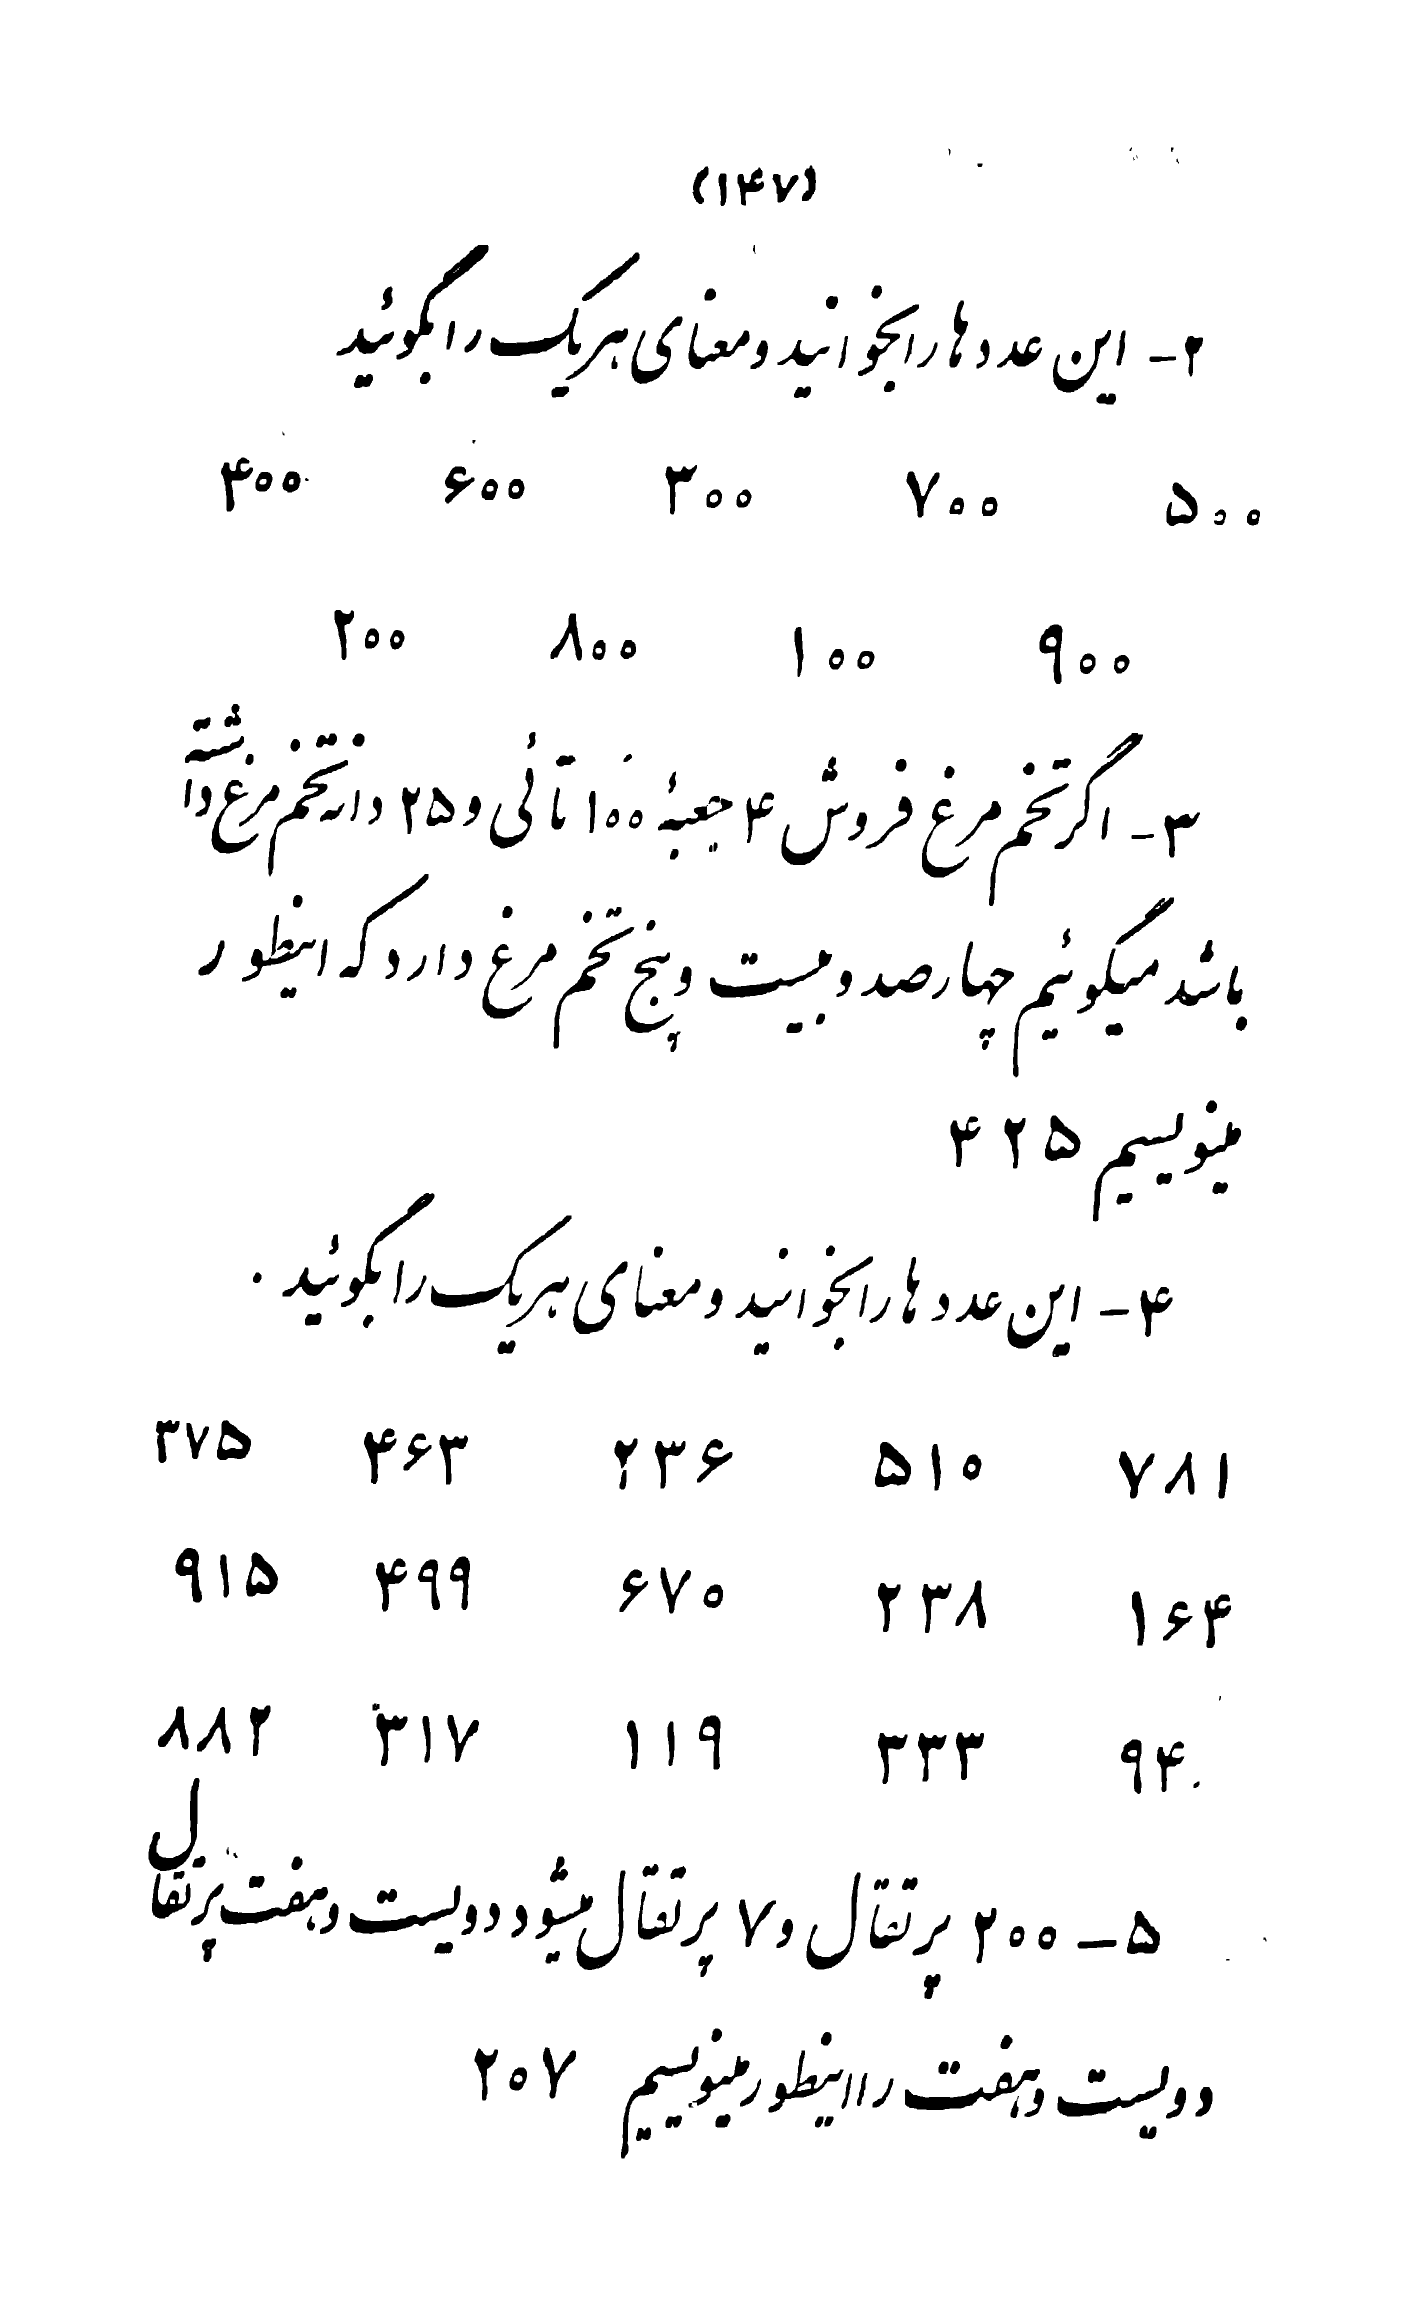 (۱۴۷)
۲- این عدد ها را بخوانید و معنای هر یک را بگوئید
۵۰۰ ۷۰۰ ۳۰۰ ۶۰۰ ۴۰۰
۹۰۰ ۱۰۰ ۸۰۰ ۲۰۰
۳- اگر تخم مرغ فروش ۴ جعبهٔ ۱۰۰ تائی و ۲۵ دانه تخم مرغ داشته
باشد میگوئیم چهار صد و بیست و پنج تخم مرغ دارد که اینطور
مینویسیم ۴۲۵
۴- این عدد ها را بخوانید و معنای هر یک را بگوئید .
۷۸۱ ۵۱۰ ۲۳۶ ۴۶۳ ۳۷۵
۱۶۴ ۲۳۸ ۶۷۰ ۴۹۹ ۹۱۵
۹۴۰ ۳۳۳ ۱۱۹ ۳۱۷ ۸۸۲
۵- ۲۰۰ پرتقال و ۷ پرتقال میشود دویست و هفت پرتقال
دویست و هفت را اینطور مینویسیم ۲۰۷